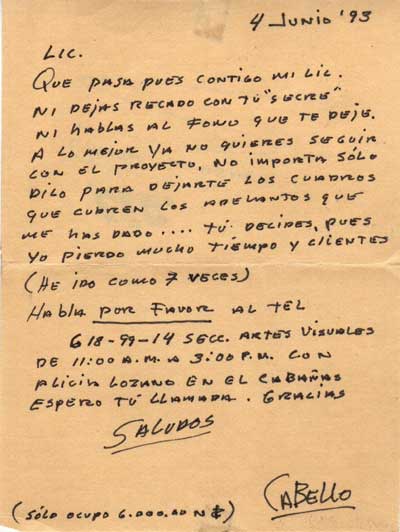 4 JUNIO '93
LIC.
QUE PASA PUES CONTIGO MI LIC.
NI DEJAS RECADO CON TÚ "SECRE"
NI HABLAS AL FONO QUE TE DEJE.
A LO MEJOR YA NO QUIERES SEGUIR
CON EL PROYECTO, NO IMPORTA SÓLO
DILO PARA DEJARTE LOS CUADROS
QUE CUBREN LOS ADELANTOS QUE
ME HAS DADO.... TÚ DECIDES, PUES
YO PIERDO MUCHO TIEMPO Y CLIENTES
(HE IDO COMO 7 VECES)
HABLA POR FAVOR AL TEL
618-99-14 SECC. ARTES VISUALES
DE 11:00 A.M. A 3:00 P.M. CON
ALICIA LOZANO EN EL CABAÑAS
ESPERO TÚ LLAMADA. GRACIAS
SALUDOS
CABELLO
(SÓLO OCUPO 6.000.00 N$)